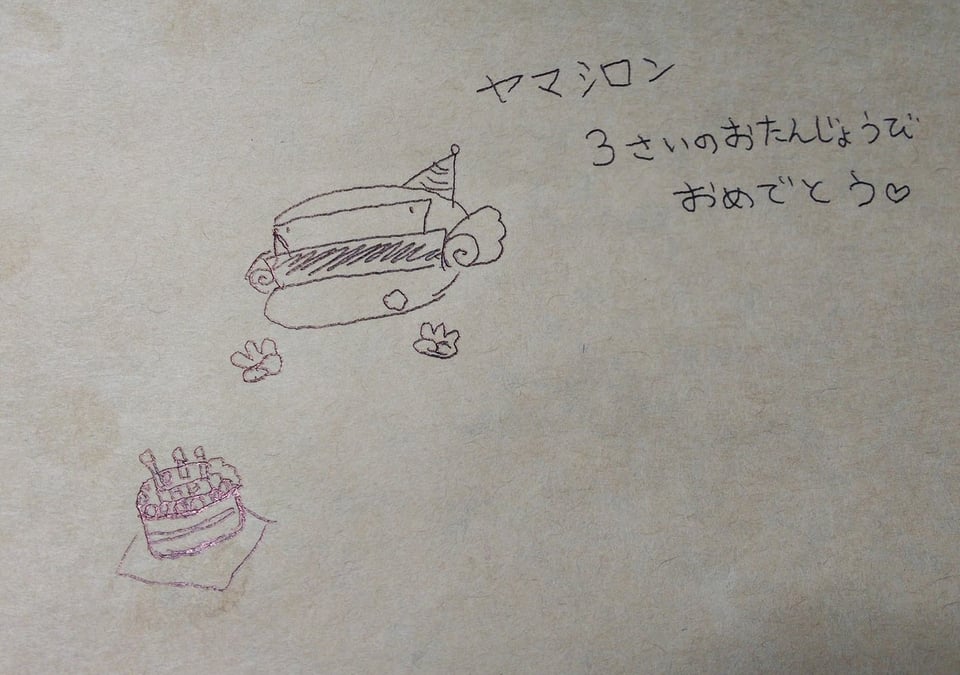 ヤマシロン
3さいのおたんじょうび
おめでとう♡